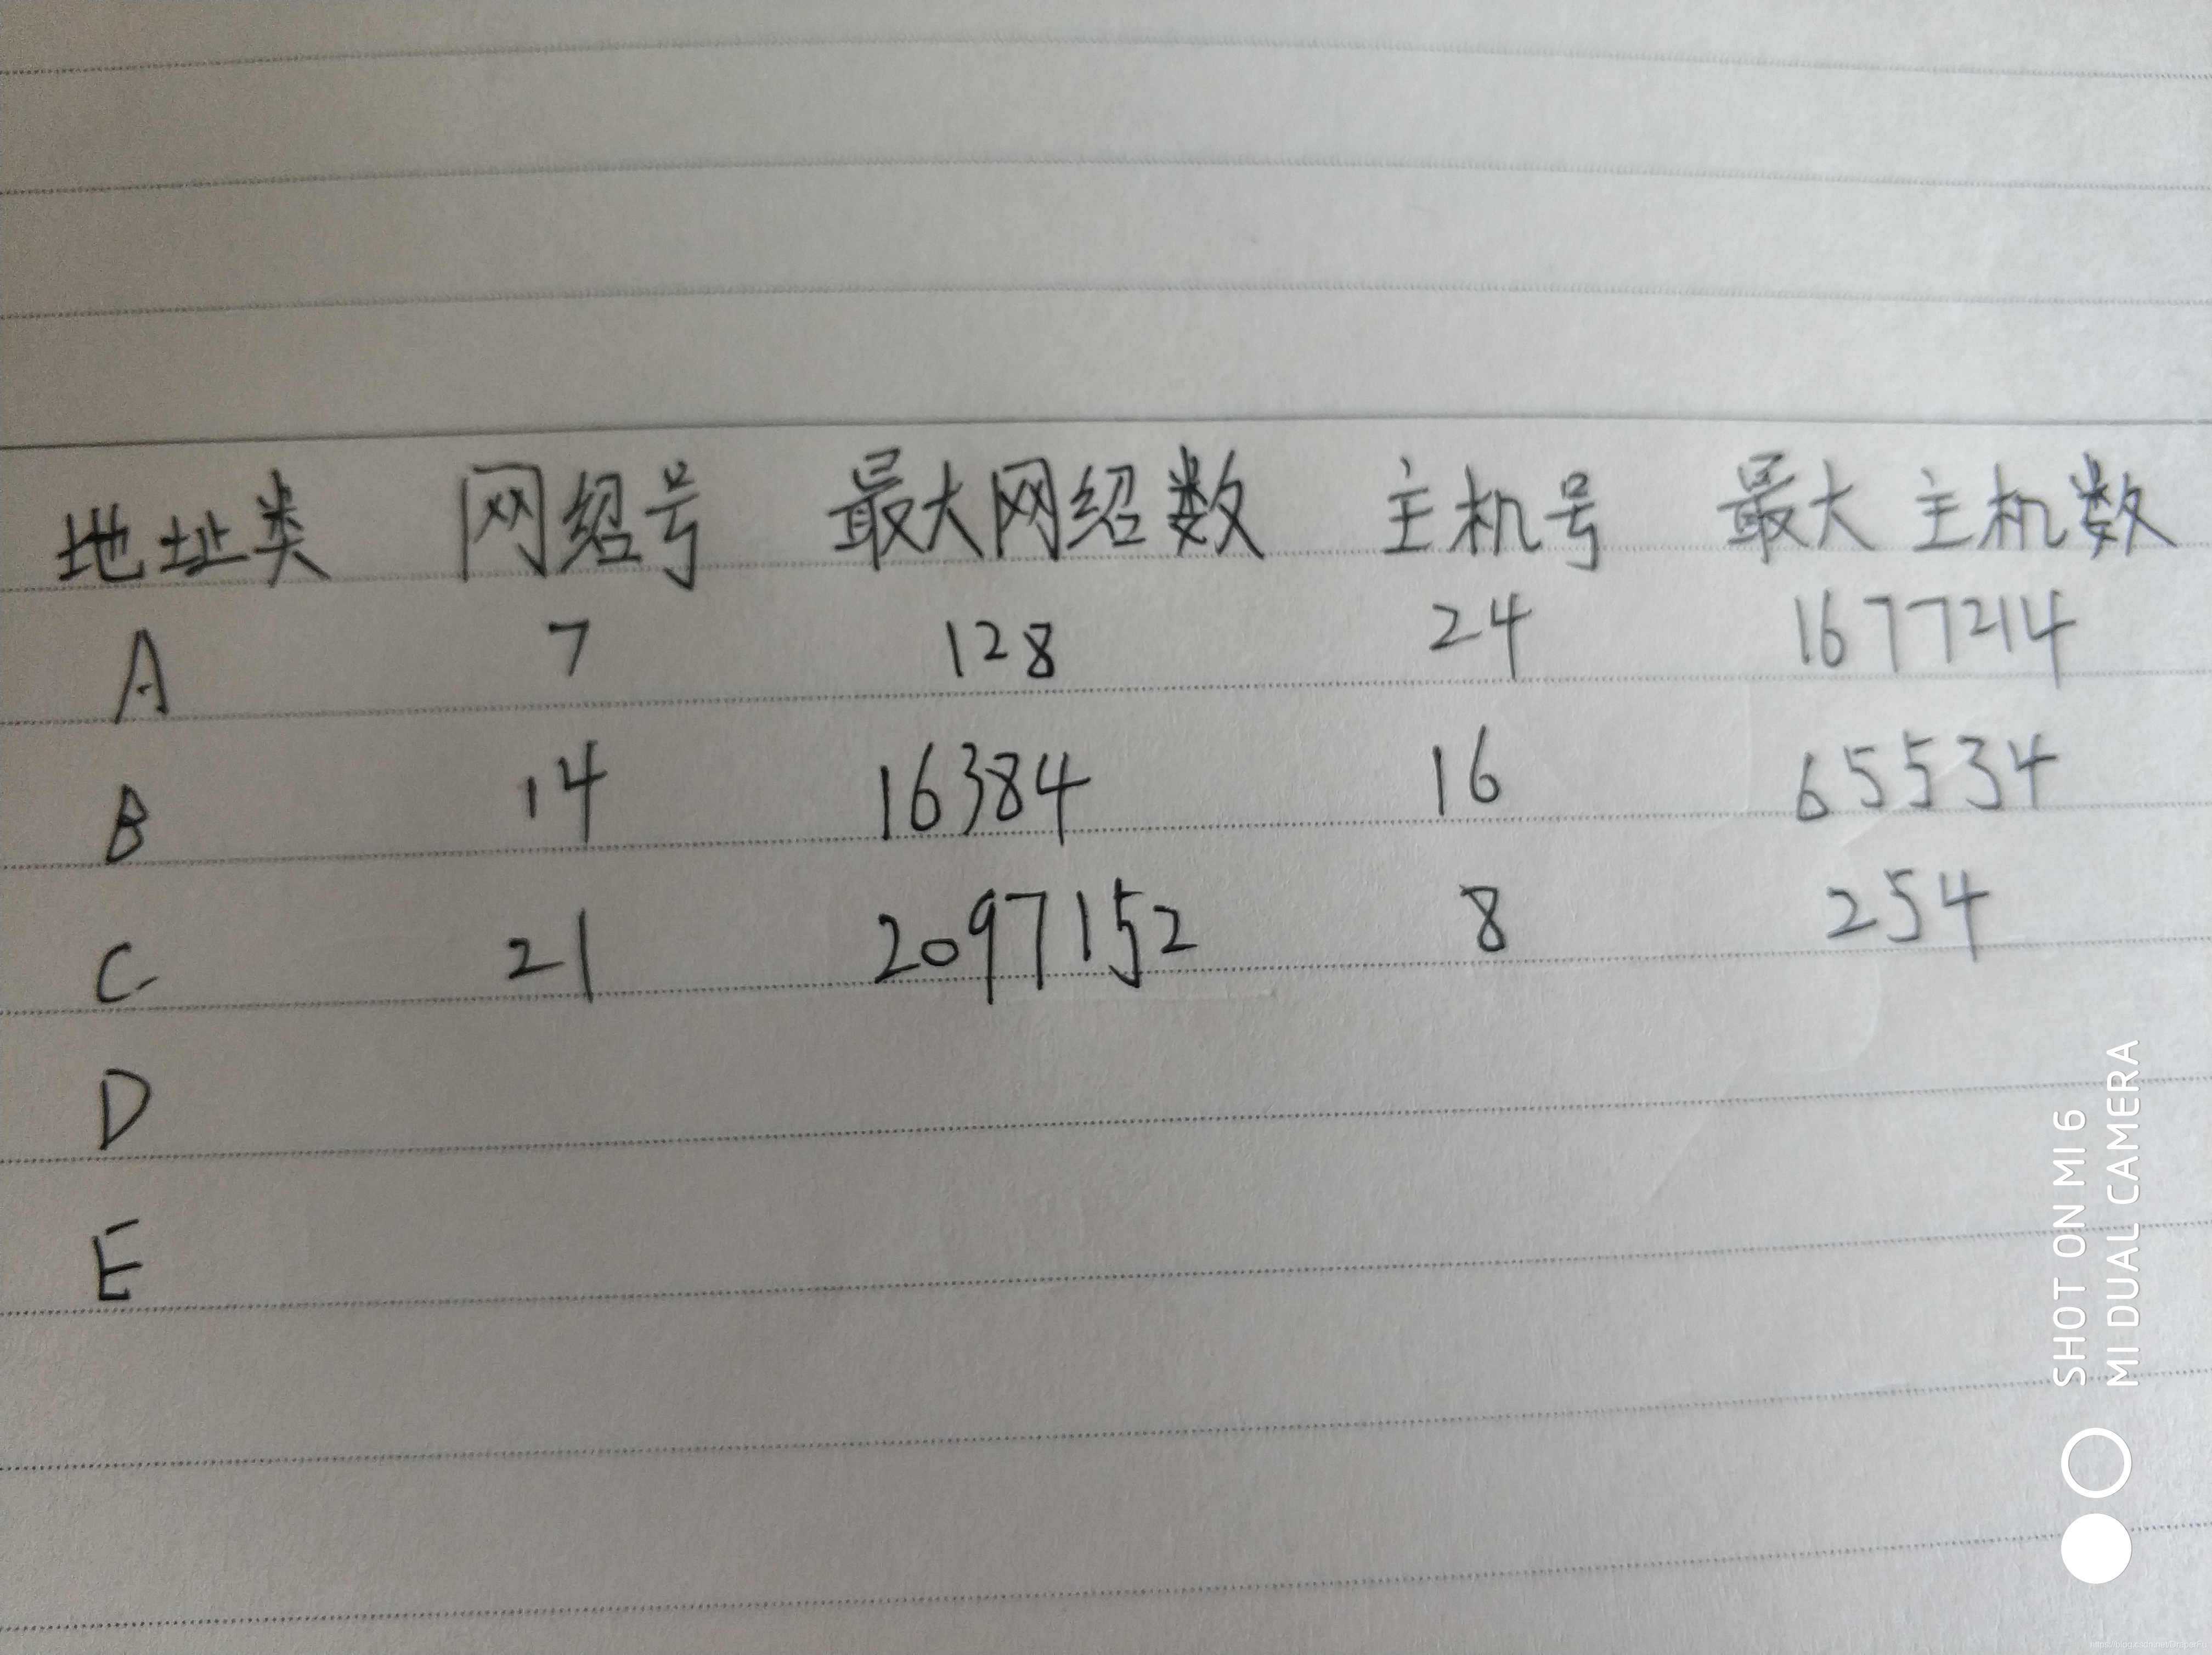 地址类 网绍号 最大网绍数 主机号 最大主机数
A 7 128 24 16777214
B 14 16384 16 65534
C 21 2097152 8 254
D
E
SHOT ON MI 6
MI DUAL CAMERA